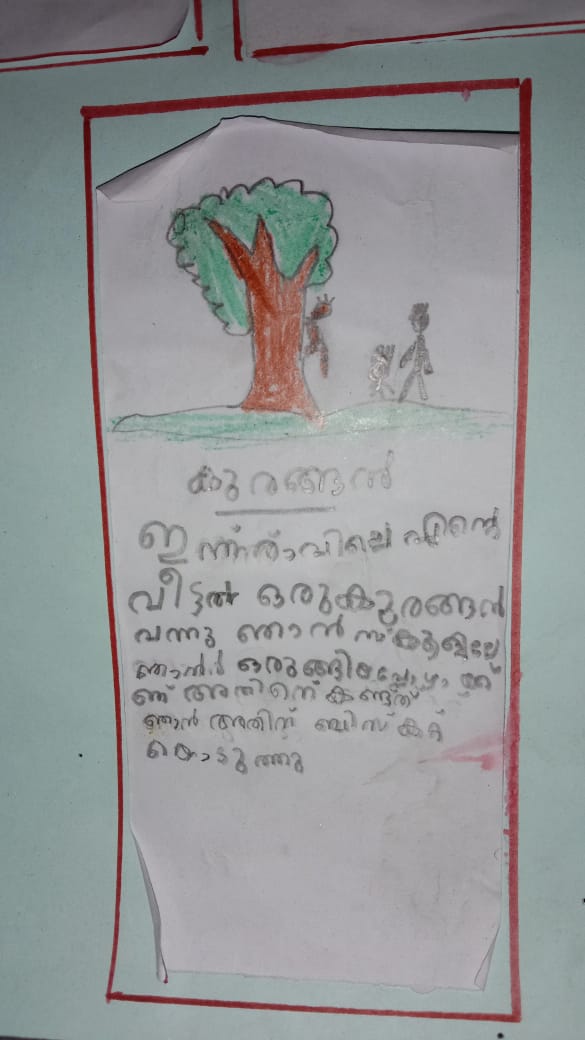 കുരങ്ങൻ
ഇന്ന് രാവിലെ എന്റെ
വീട്ടൽ ഒരുകുരങ്ങൻ
വന്നു ഞാൻ സ്കൂളിലേ
ഒരുങ്ങിയപ്പോഴാ
ണ് അതിനെ കണ്ടത്
ഞാൻ അതിന് ബിസ്കറ്റ്
കൊടുത്തു